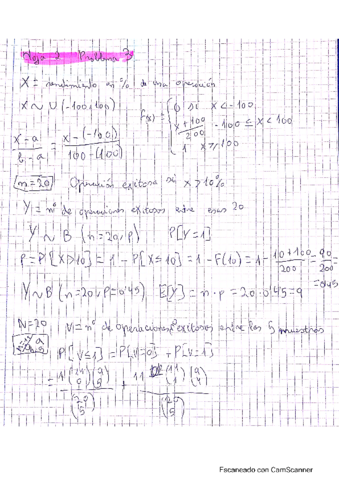 Hoja 2 Problema 3
X = rendimiento en % de una operación
X ~ U (-100,100) F(x) = { 0 si x < -100
x+100/200 -100 ≤ x < 100
1 x ≥ 100
x-a/b-a = x-(-100)/100-(-100)
m=20 Operación exitosa si x > 10%
Y = nº de operaciones exitosas entre esas 20
Y ~ B (n=20, p) P[Y=1]
P = P[X>10] = 1 - P[X≤10] = 1 - F(10) = 1 - 10+100/200 = 90/200 = 0'45
Y ~ B (n=20, p=0'45) E[Y] = n·p = 20·0'45 = 9
N=20 V = nº de operaciones exitosas entre las 5 muestras
P[V≤1] = P[V=0] + P[V=1]
Escaneado con CamScanner